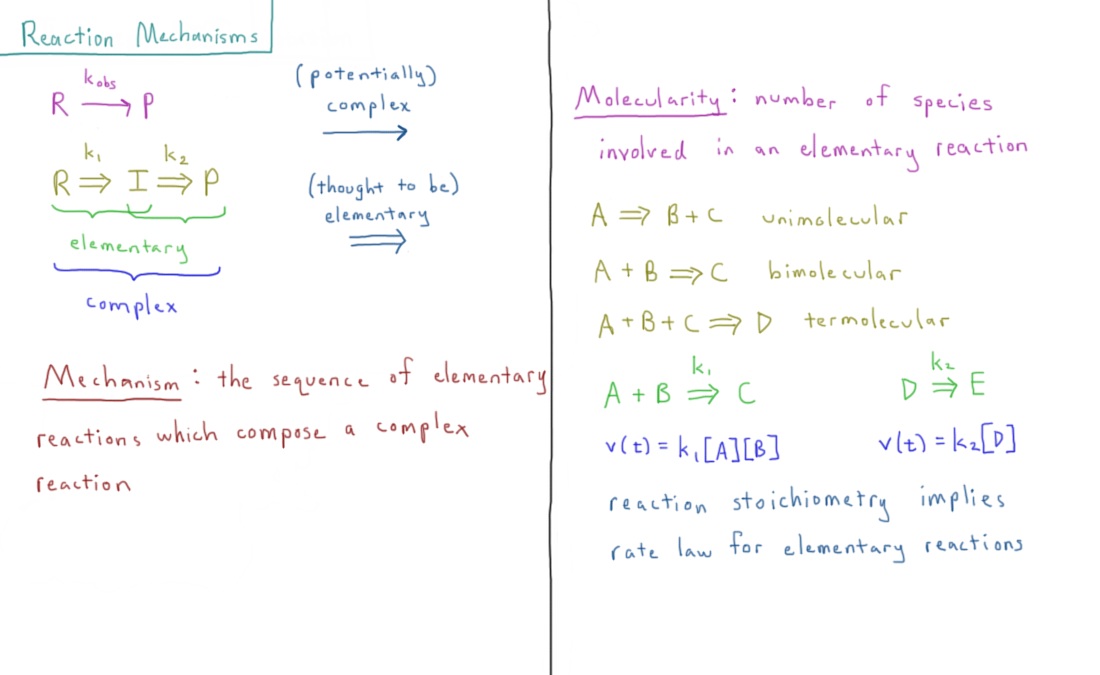 Reaction Mechanisms
R k_obs → P
R k₁ ⇒ I k₂ ⇒ P
elementary
complex
(potentially)
complex
→
(thought to be)
elementary
⇒
Mechanism: the sequence of elementary
reactions which compose a complex
reaction
Molecularity: number of species
involved in an elementary reaction
A ⇒ B + C unimolecular
A + B ⇒ C bimolecular
A + B + C ⇒ D termolecular
A + B k₁ ⇒ C D k₂ ⇒ E
v(t) = k₁[A][B] v(t) = k₂[D]
reaction stoichiometry implies
rate law for elementary reactions